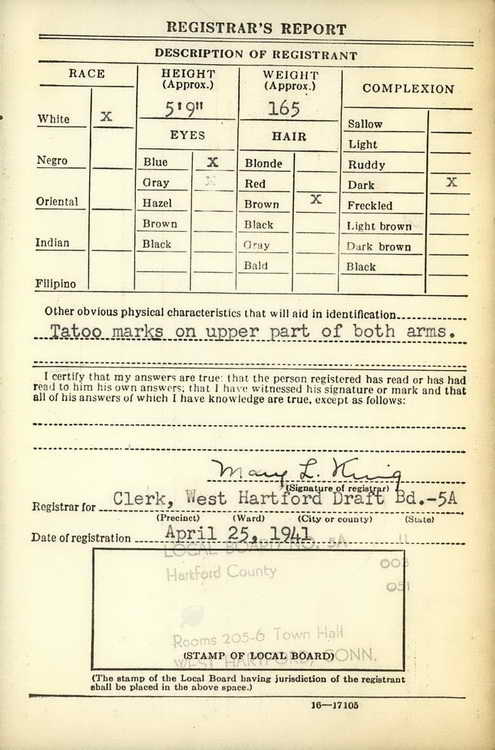 REGISTRAR'S REPORT
DESCRIPTION OF REGISTRANT
RACE
HEIGHT
(Approx.)
WEIGHT
(Approx.)
COMPLEXION
5'9"
165
White X
EYES
HAIR
Sallow
Light
Negro
Blue X
Blonde
Ruddy
Gray X
Red
Dark X
Oriental
Hazel
Brown X
Freckled
Brown
Black
Light brown
Indian
Black
Gray
Dark brown
Bald
Black
Filipino
Other obvious physical characteristics that will aid in identification
Tatoo marks on upper part of both arms.
I certify that my answers are true; that the person registered has read or has had
read to him his own answers; that I have witnessed his signature or mark and that
all of his answers of which I have knowledge are true, except as follows:
Mary L. King
(Signature of registrar)
Registrar for Clerk, West Hartford Draft Bd.-5A
(Precinct) (Ward) (City or county) (State)
Date of registration April 25, 1941
LOCAL BOARD NO. 5A 11
Hartford County 003
051
Rooms 205-6 Town Hall
(STAMP OF LOCAL BOARD)
WEST HARTFORD, CONN.
(The stamp of the Local Board having jurisdiction of the registrant
shall be placed in the above space.)
16—17105